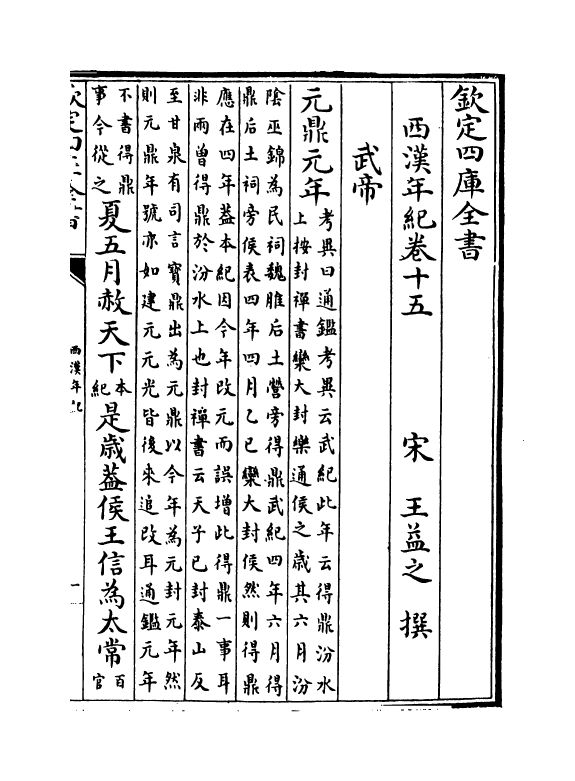 欽定四庫全書
西漢年紀卷十五　宋　王益之　撰
武帝
元鼎元年
考異曰通鑑考異云武紀此年云得鼎汾水
上按封禪書欒大封樂通侯之歲其六月汾
陰巫錦為民祠魏脽后土營旁得鼎武紀四年六月得
鼎后土祠旁侯表四年四月乙巳欒大封侯然則得鼎
應在四年葢本紀因今年改元而誤增此得鼎一事耳
非兩曾得鼎於汾水上也封禪書云天子已封泰山反
至甘泉有司言寳鼎出為元鼎以今年為元封元年然
則元鼎年號亦如建元元光皆後來追改耳通鑑元年
不書得鼎
事今從之
夏五月赦天下
本
紀
是歲葢侯王信為太常
百
官
西漢年紀
一